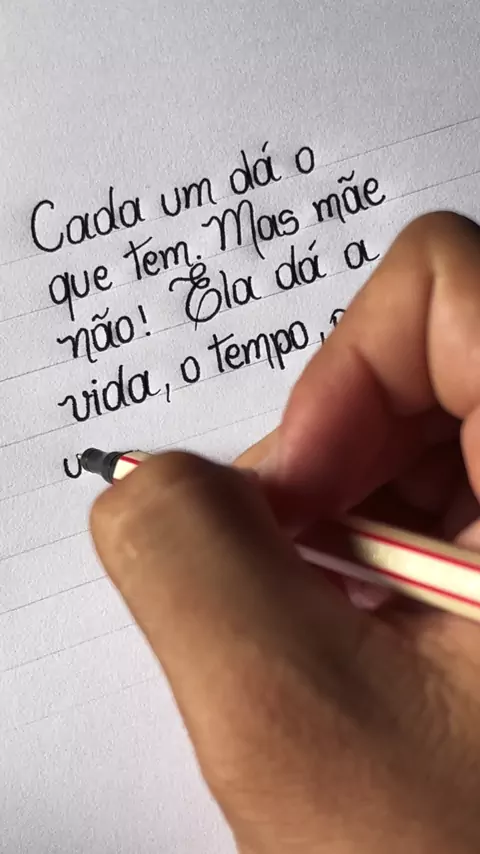 Cada um dá o
que tem. Mas mãe
não! Ela dá a
vida, o tempo,
u